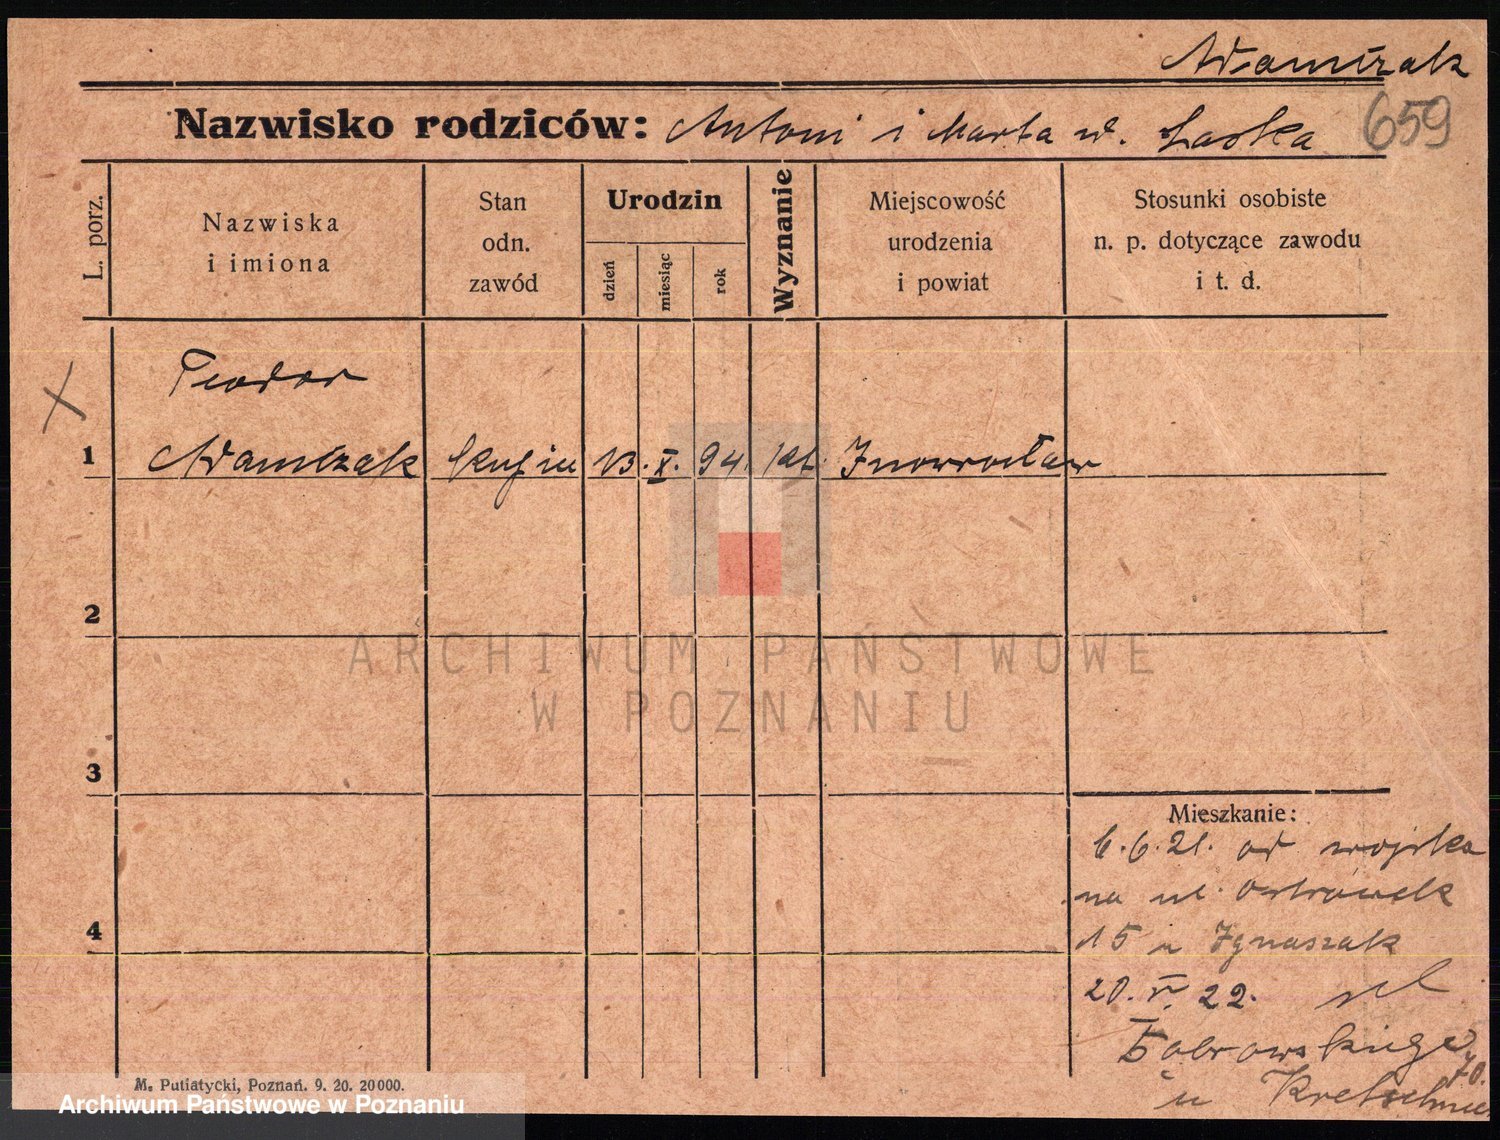 Adamczak
Nazwisko rodziców: Antoni i Marta ur. Laska 659
L. porz.
Nazwiska
i imiona
Stan
odn.
zawód
Urodzin
dzień
miesiąc
rok
Wyznanie
Miejscowość
urodzenia
i powiat
Stosunki osobiste
n. p. dotyczące zawodu
i t. d.
X
Teodor
1 Adamczak 13. X. 94. kat. Inowrocław
2
ARCHIWUM PAŃSTWOWE
W POZNANIU
3
Mieszkanie:
6.6.21. od wojska
na ul. Ostrówek
15 u Ignaszak
4
20. V. 22. ul
Dąbrowskiego
70.
u
M. Putiatycki, Poznań. 9. 20. 20000.
Archiwum Państwowe w Poznaniu